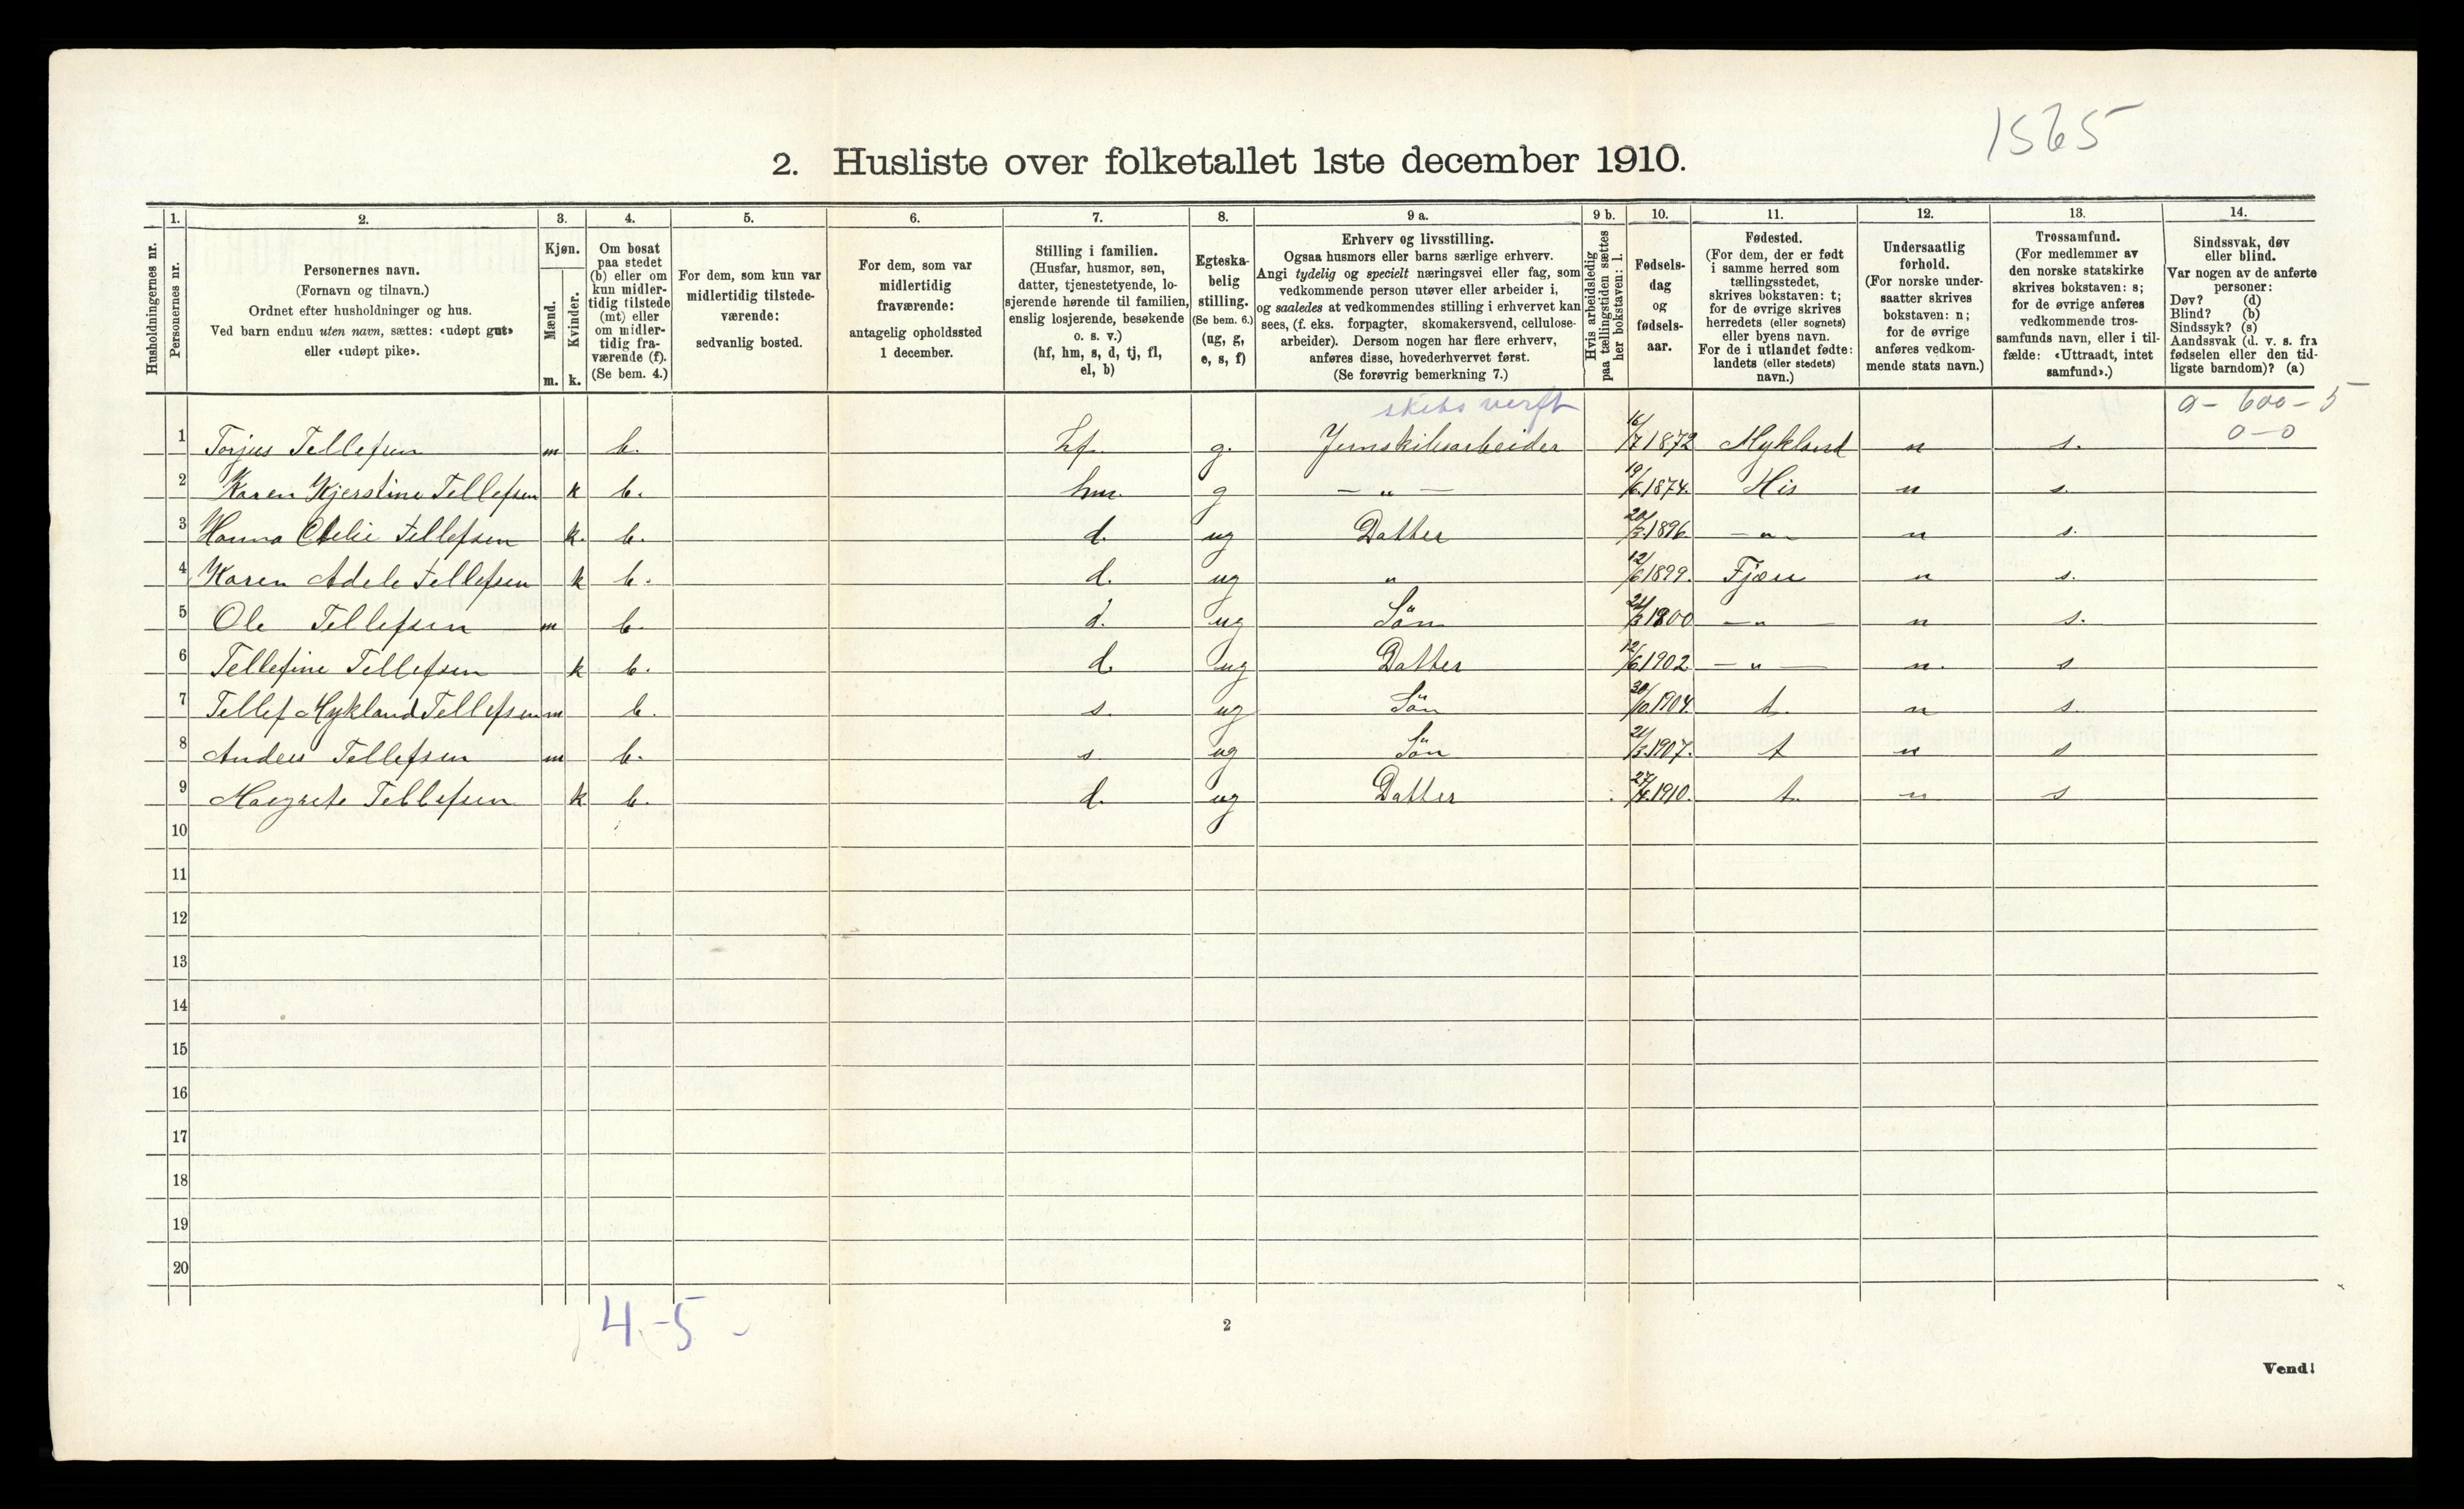 1565
2. Husliste over folketallet 1ste december 1910.
Husholdningernes nr.
1.
Personernes nr.
2.
Personernes navn.
(Fornavn og tilnavn.)
Ordnet efter husholdninger og hus.
Ved barn endnu uten navn, sættes: «udøpt gut»
eller «udøpt pike».
3.
Kjøn.
Mænd.
m.
Kvinder.
k.
4.
Om bosat
paa stedet
(b) eller om
kun midler-
tidig tilstede
(mt) eller
om midler-
tidig fra-
værende (f).
(Se bem. 4.)
5.
For dem, som kun var
midlertidig tilstede-
værende:
sedvanlig bosted.
6.
For dem, som var
midlertidig
fraværende:
antagelig opholdssted
1 december.
7.
Stilling i familien.
(Husfar, husmor, søn,
datter, tjenestetyende, lo-
sjerende hørende til familien,
enslig losjerende, besøkende
o. s. v.)
(hf, hm, s, d, tj, fl,
el, b)
8.
Egteska-
belig
stilling.
(Se bem. 6.)
(ug, g,
e, s, f)
9 a.
Erhverv og livsstilling.
Ogsaa husmors eller barns særlige erhverv.
Angi tydelig og specielt næringsvei eller fag, som
vedkommende person utøver eller arbeider i,
og saaledes at vedkommendes stilling i erhvervet kan
sees, (f. eks. forpagter, skomakersvend, cellulose-
arbeider). Dersom nogen har flere erhverv,
anføres disse, hovederhvervet først.
(Se forøvrig bemerkning 7.)
9 b.
Hvis arbeidsledig
paa tællingstiden sættes
her bokstaven: l.
10.
Fødsels-
dag
og
fødsels-
aar.
11.
Fødested.
(For dem, der er født
i samme herred som
tællingsstedet,
skrives bokstaven: t;
for de øvrige skrives
herredets (eller sognets)
eller byens navn.
For de i utlandet fødte:
landets (eller stedets)
navn.)
12.
Undersaatlig
forhold.
(For norske under-
saatter skrives
bokstaven: n;
for de øvrige
anføres vedkom-
mende stats navn.)
13.
Trossamfund.
(For medlemmer av
den norske statskirke
skrives bokstaven: s;
for de øvrige anføres
vedkommende tros-
samfunds navn, eller i til-
fælde: «Uttraadt, intet
samfund».)
14.
Sindssvak, døv
eller blind.
Var nogen av de anførte
personer:
Døv? (d)
Blind? (b)
Sindssyk? (s)
Aandssvak (d. v. s. fra
fødselen eller den tid-
ligste barndom)? (a)
skibsverft
a - 600 - 5
0-0
1 Torjus Tellefsen m b. hf. g. Jernskibsarbeider 16/7 1872 Mykland n s.
2 Karen Kjerstine Tellefsen k b. hm. g — " — 19/6 1874. His n s.
3 Hanna Tellefsen k. b. d. ug Datter 20/3 1896. — " — n s.
4 Karen Adele Tellefsen k b. d. ug " 12/6 1899. Fjære n s.
5 Ole Tellefsen m b. d. ug Sön 1900 — " — n s.
6 Tellefine Tellefsen k b. d. ug Datter 12/6 1902. — " — n. s
7 Tellef Mykland Tellefsen m b. s. ug Sön 30/10 1904. t. n s.
8 Anders Tellefsen m b. s. ug Sön 21/3 1907. t n s
9 Margrete Tellefsen k b. d. ug Datter 27/4 1910. t. n s
10
11
12
13
14
15
16
17
18
19
20
4-5
2
Vend!